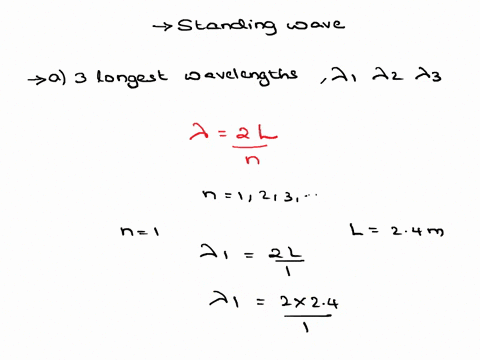 → Standing wave
→ a) 3 longest wavelengths , λ1 λ2 λ3
λ = 2L/n
n = 1, 2, 3, ...
n = 1 L = 2.4 m
λ1 = 2L/1
λ1 = 2 × 2.4/1